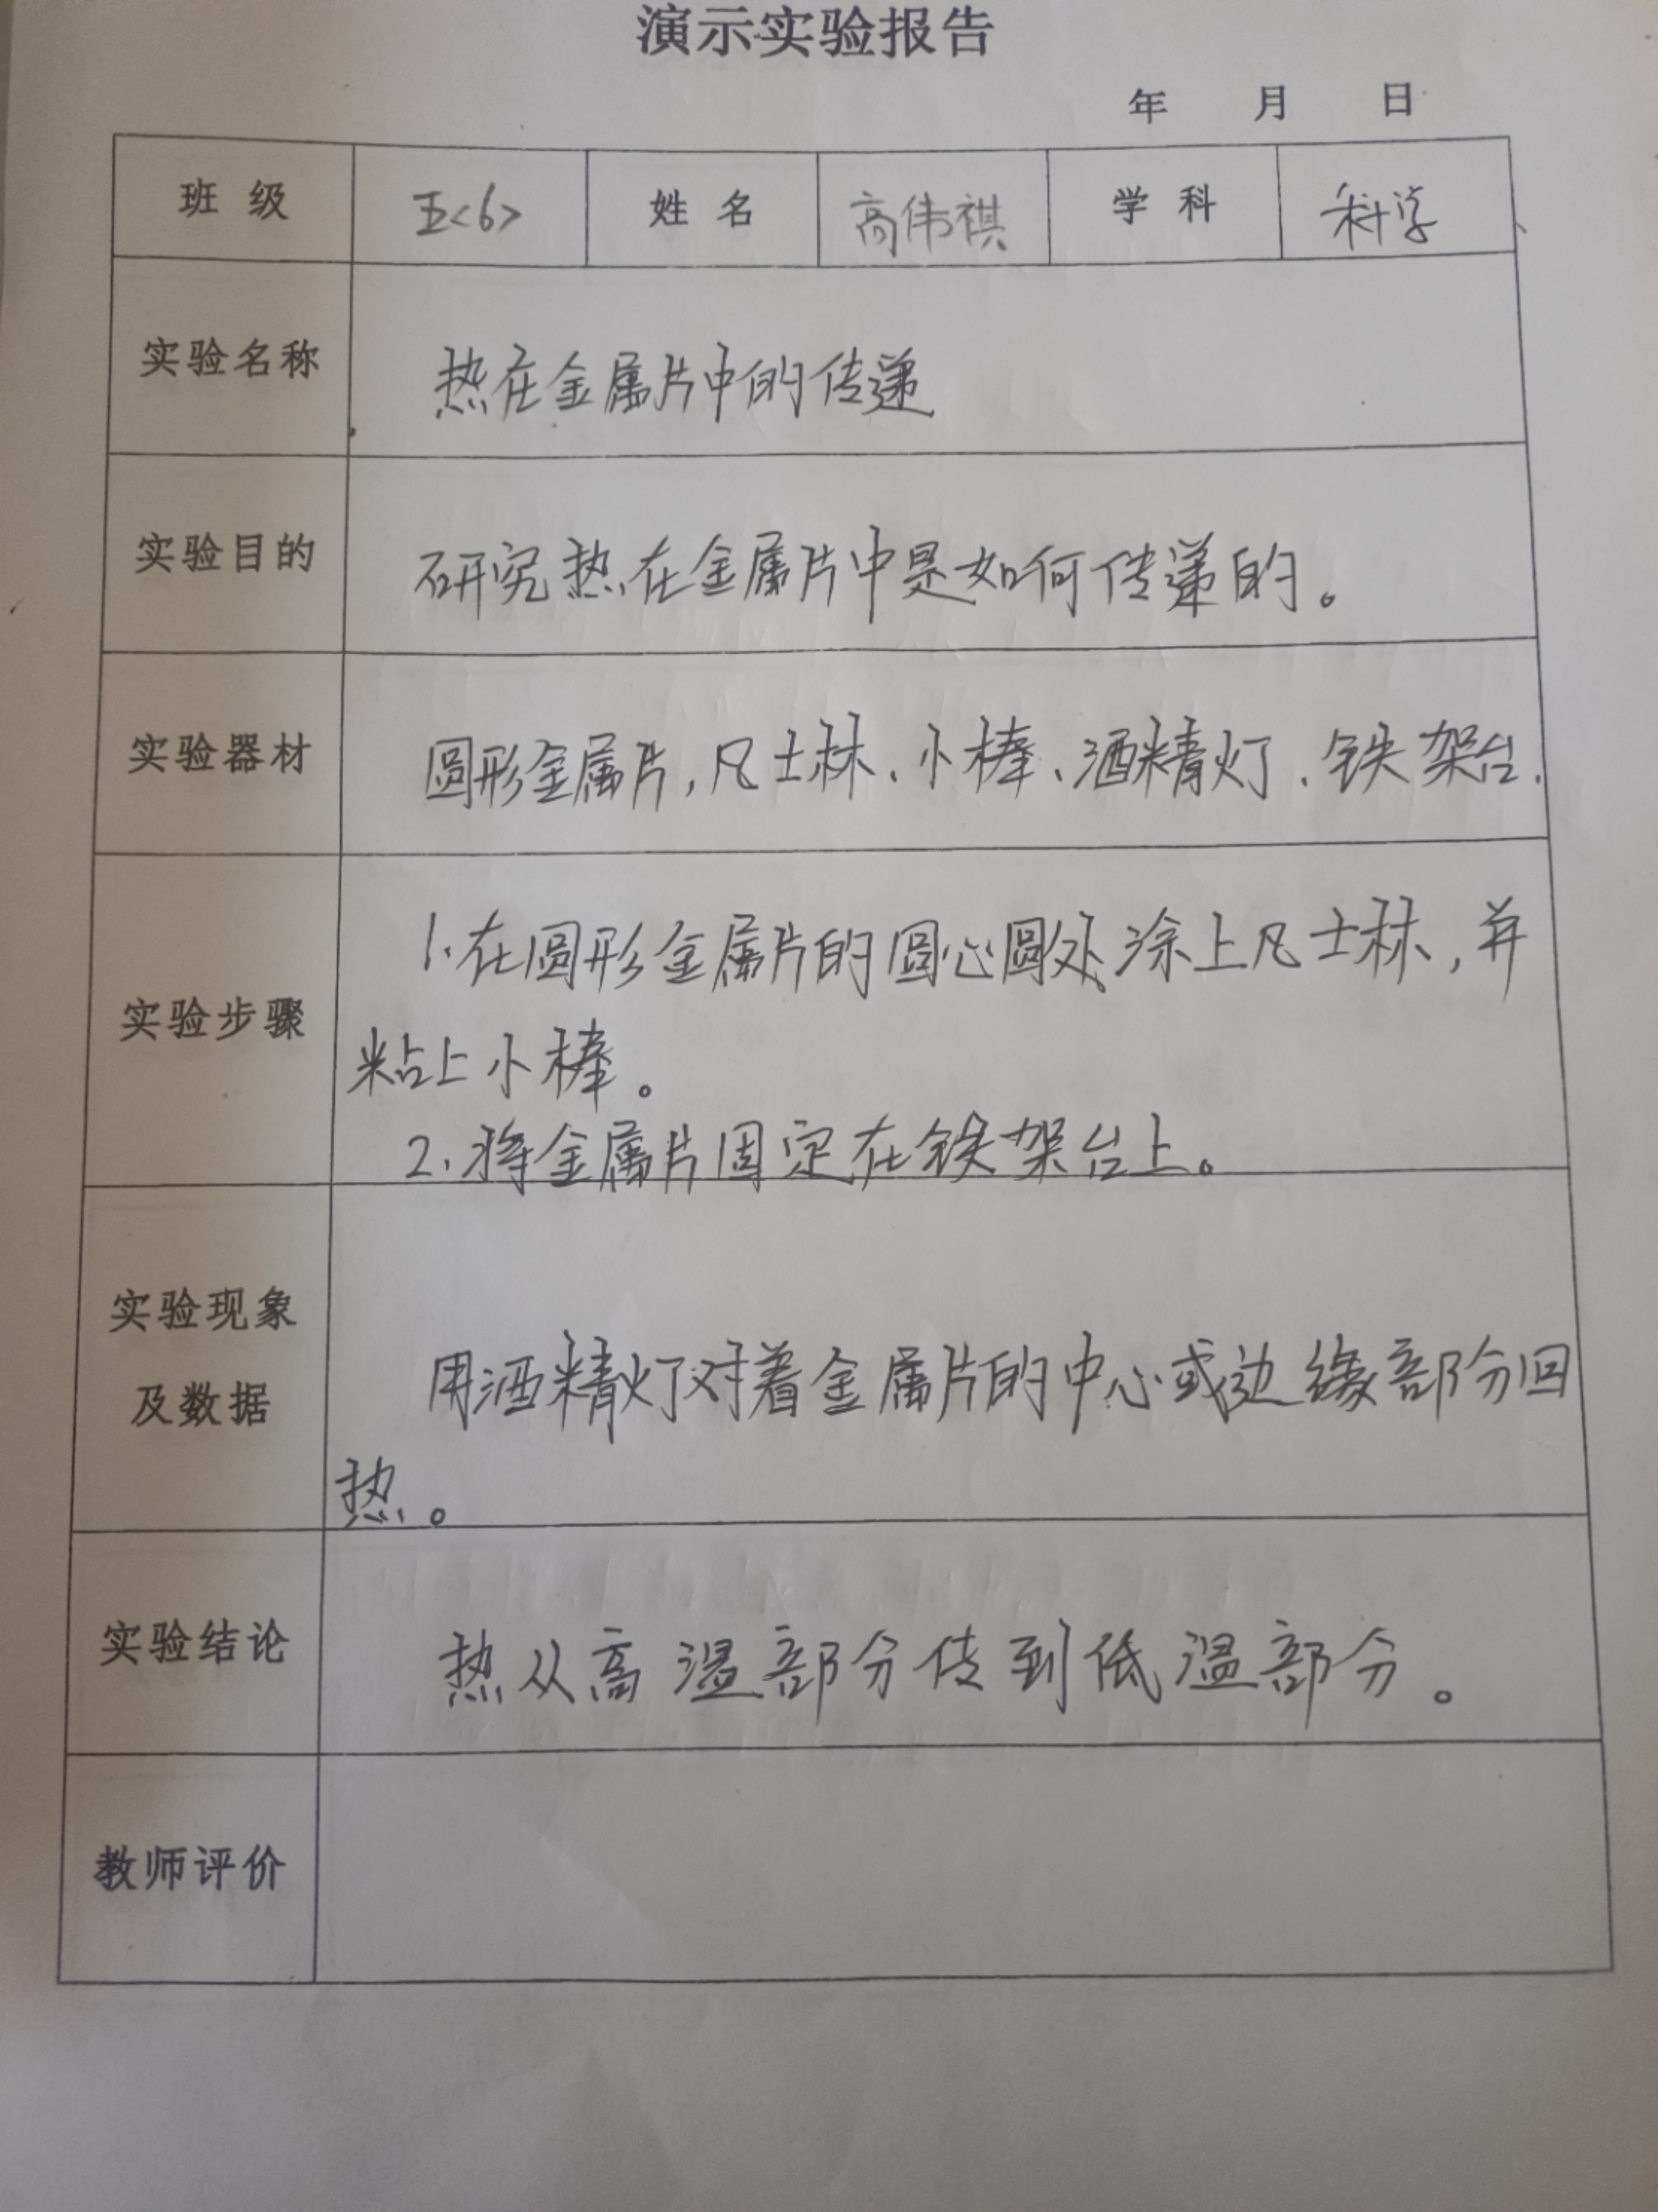 演示实验报告
年 月 日
班级 五<6> 姓名 高伟祺 学科 科学
实验名称 热在金属片中的传递
实验目的 研究热在金属片中是如何传递的。
实验器材 圆形金属片,凡士林、小棒、酒精灯、铁架台.
实验步骤
1.在圆形金属片的圆心圆处涂上凡士林,并
粘上小棒。
2.将金属片固定在铁架台上。
实验现象
及数据
用酒精灯对着金属片的中心或边缘部分回
热。
实验结论 热从高温部分传到低温部分。
教师评价